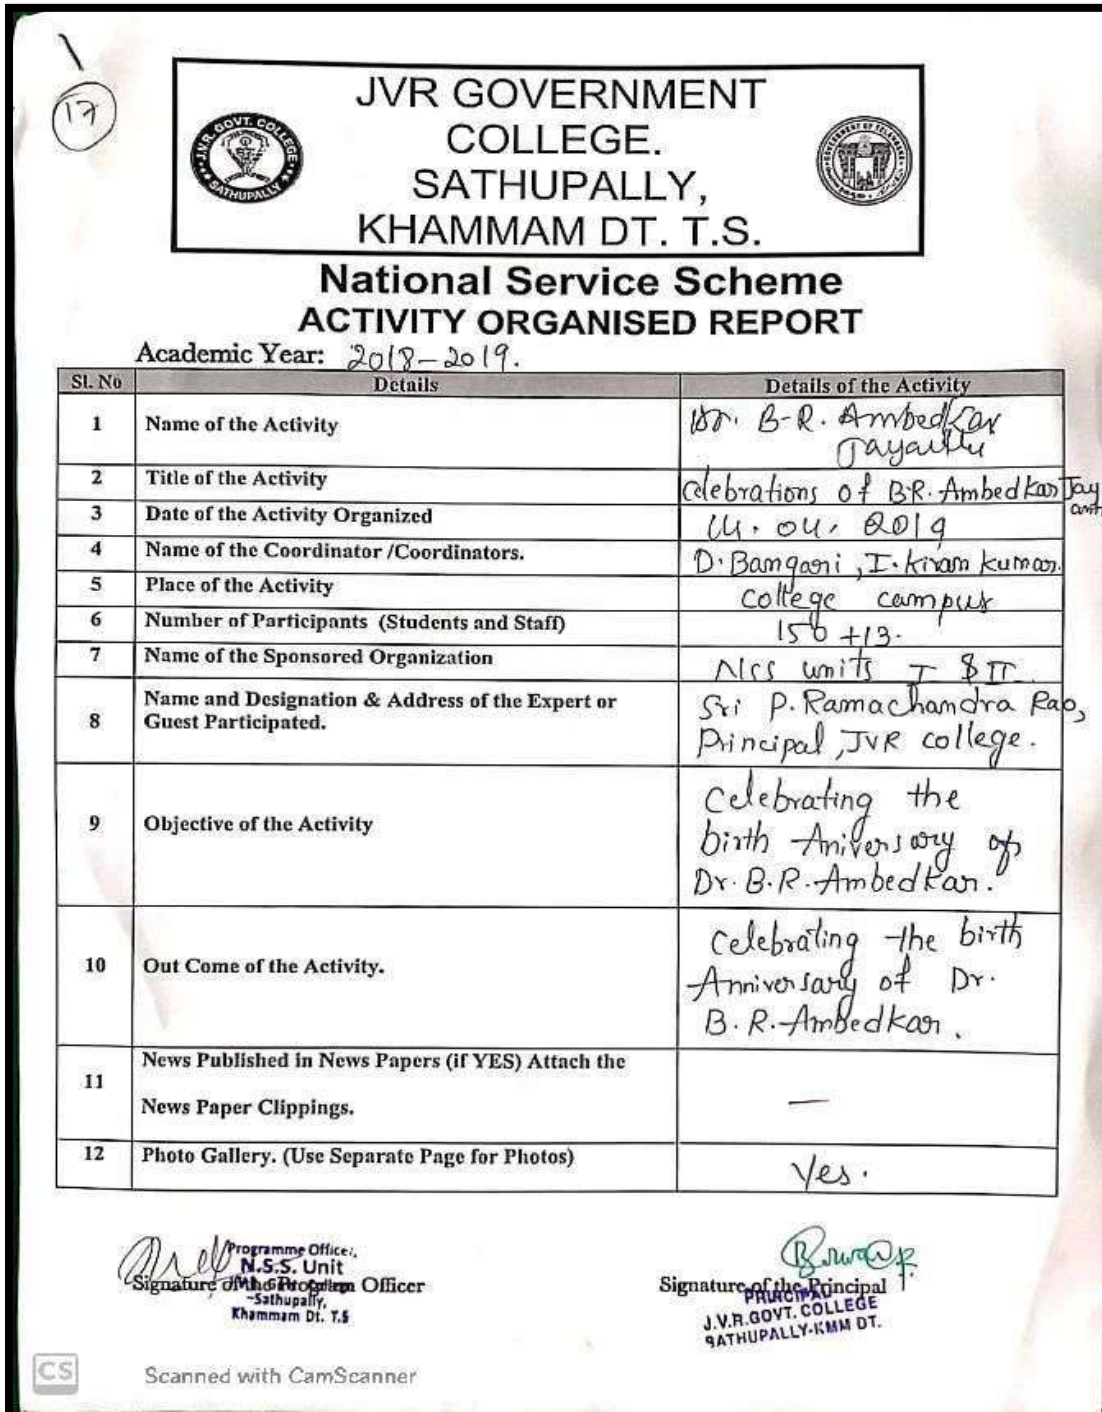 17
JVR GOVERNMENT
COLLEGE.
SATHUPALLY,
KHAMMAM DT. T.S.
J.V.R. GOVT. COLLEGE
SATHUPALLY
GOVERNMENT OF TELANGANA
National Service Scheme
ACTIVITY ORGANISED REPORT
Academic Year: 2018-2019.
Sl. No Details Details of the Activity
1 Name of the Activity Dr. B-R. Ambedkar
Jayanthi
2 Title of the Activity Celebrations of B.R. Ambedkar Jay
anti
3 Date of the Activity Organized 14. 04. 2019
4 Name of the Coordinator /Coordinators. D. Bangari, I. kiran kumar.
5 Place of the Activity college campus
6 Number of Participants (Students and Staff) 150 +13.
7 Name of the Sponsored Organization NSS units I & II
8 Name and Designation & Address of the Expert or
Guest Participated. Sri P. Ramachandra Rao,
Principal, JVR college.
9 Objective of the Activity Celebrating the
birth Aniversary of
Dr. B.R. Ambedkar.
10 Out Come of the Activity. Celebrating the birth
Anniversary of Dr.
B.R. Ambedkar.
11 News Published in News Papers (if YES) Attach the
News Paper Clippings. —
12 Photo Gallery. (Use Separate Page for Photos) Yes.
Programme Officer,
N.S.S. Unit
Signature of the Program Officer
Sathupally,
Khammam Dt. T.S
Signature of the Principal
PRINCIPAL
J.V.R.GOVT. COLLEGE
SATHUPALLY-KMM DT.
CS Scanned with CamScanner